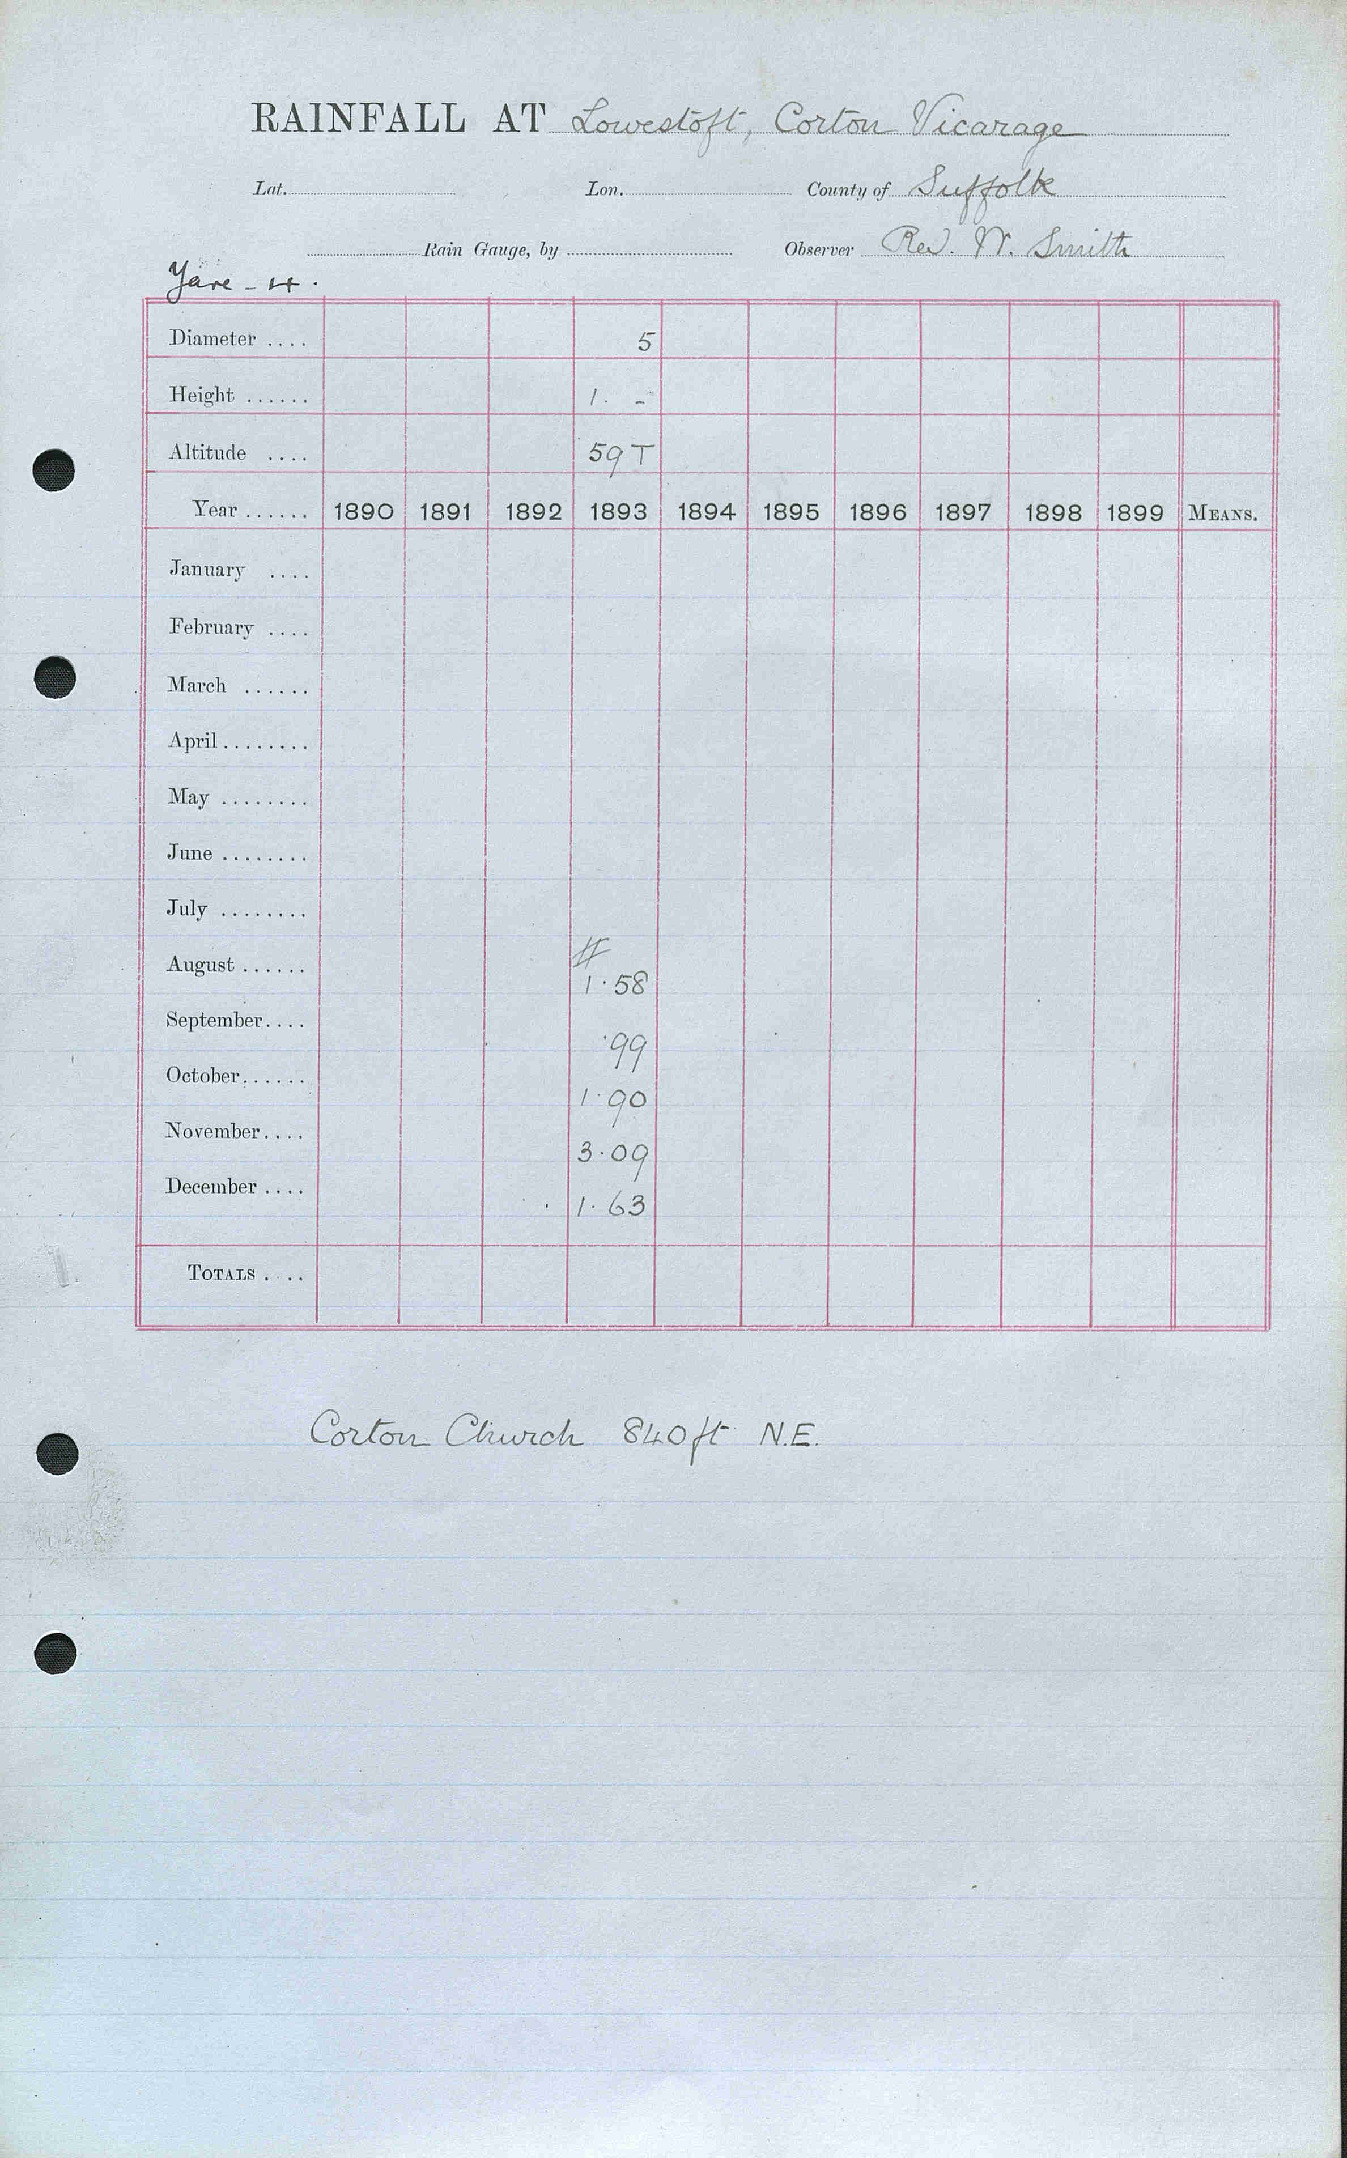 RAINFALL AT Lowestoft, Corton Vicarage
Lat. Lon. County of Suffolk
Rain Gauge, by Observer Rev. W. Smith
Yare - 4.
Diameter .... 5
Height ...... 1. -
Altitude .... 59 T
Year ...... 1890 1891 1892 1893 1894 1895 1896 1897 1898 1899 MEANS.
January ....
February ....
March ......
April ........
May ........
June ........
July ........
August ...... 1.58
September .... .99
October ...... 1.90
November .... 3.09
December .... 1.63
TOTALS ....
Corton Church 840 ft N.E.